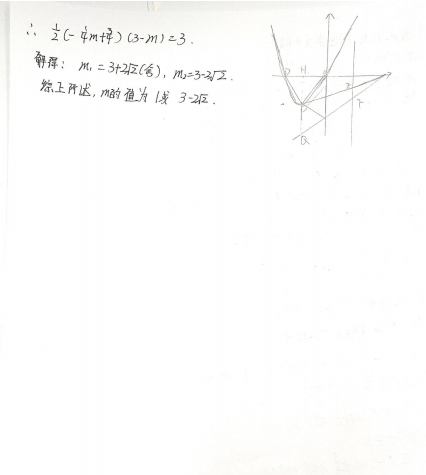 ∴ ½(-¼m+¾)(3-m)=3.
解得: m₁=3+2√2(舍), m₂=3-2√2.
综上所述, m的值为1或 3-2√2.
H
Q